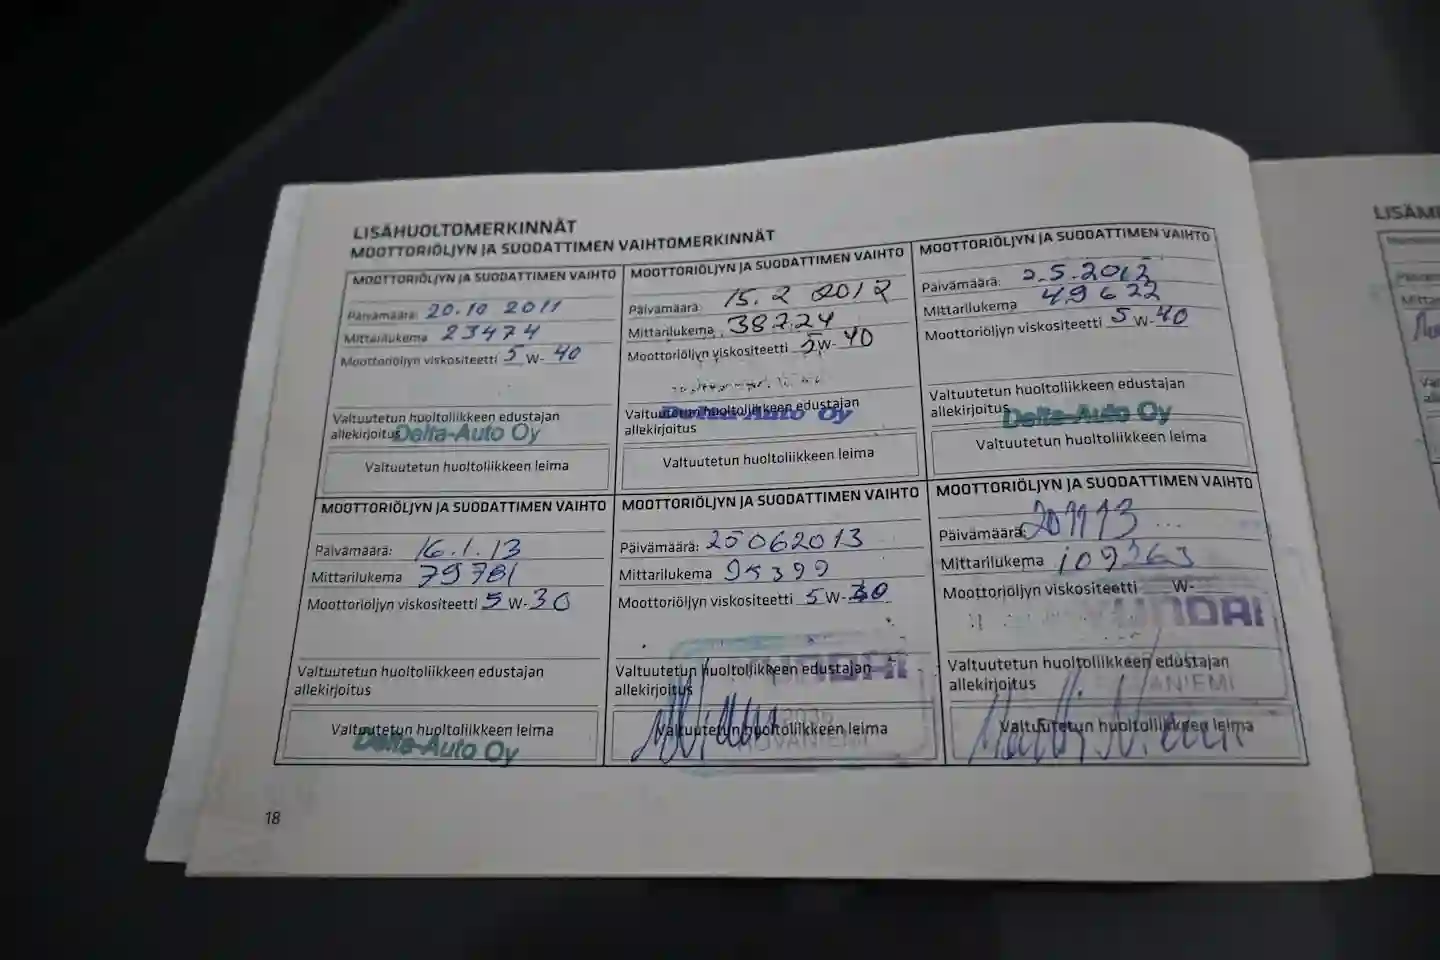 LISÄHUOLTOMERKINNÄT
MOOTTORIÖLJYN JA SUODATTIMEN VAIHTOMERKINNÄT
MOOTTORIÖLJYN JA SUODATTIMEN VAIHTO
Päivämäärä: 20.10 2011
Mittarilukema 23474
Moottoriöljyn viskositeetti 5 W- 40
Valtuutetun huoltoliikkeen edustajan
allekirjoitus
Delta-Auto Oy
Valtuutetun huoltoliikkeen leima
MOOTTORIÖLJYN JA SUODATTIMEN VAIHTO
Päivämäärä: 15.2 2012
Mittarilukema 38724
Moottoriöljyn viskositeetti 5 W- 40
Valtuutetun huoltoliikkeen edustajan
Delta-Auto Oy
allekirjoitus
Valtuutetun huoltoliikkeen leima
MOOTTORIÖLJYN JA SUODATTIMEN VAIHTO
Päivämäärä: 2.5.2012
Mittarilukema 49622
Moottoriöljyn viskositeetti 5 W- 40
Valtuutetun huoltoliikkeen edustajan
allekirjoitus
Delta-Auto Oy
Valtuutetun huoltoliikkeen leima
MOOTTORIÖLJYN JA SUODATTIMEN VAIHTO
Päivämäärä: 16.1.13
Mittarilukema 79781
Moottoriöljyn viskositeetti 5 W- 30
Valtuutetun huoltoliikkeen edustajan
allekirjoitus
Valtuutetun huoltoliikkeen leima
Delta-Auto Oy
MOOTTORIÖLJYN JA SUODATTIMEN VAIHTO
Päivämäärä: 25062013
Mittarilukema 95399
Moottoriöljyn viskositeetti 5 W- 30
Valtuutetun huoltoliikkeen edustajan
allekirjoitus
Valtuutetun huoltoliikkeen leima
MOOTTORIÖLJYN JA SUODATTIMEN VAIHTO
Päivämäärä: 201113
Mittarilukema 109263
Moottoriöljyn viskositeetti W-
Valtuutetun huoltoliikkeen edustajan
allekirjoitus
Valtuutetun huoltoliikkeen leima
18